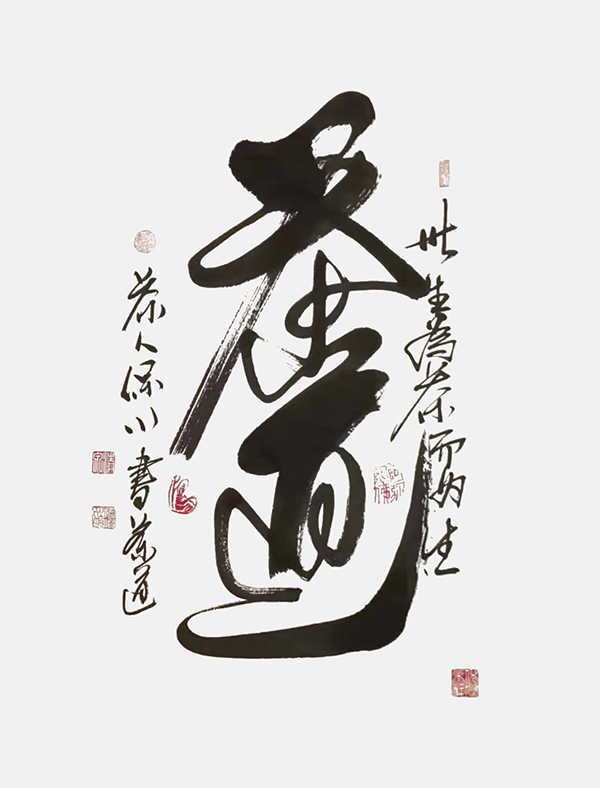 此生為茶而为生
茶道
茶人保川書茶道